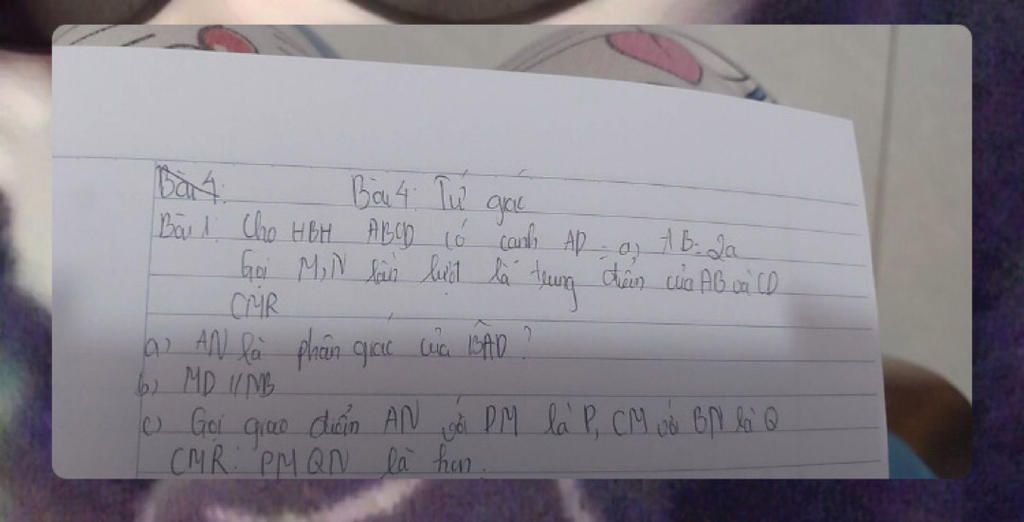 Bài 4:
Bài 4: Tứ giác
Bài 1. Cho HBH ABCD có cạnh AD = a, AB = 2a
Gọi M, N lần lượt là trung điểm của AB và CD
CMR
a) AN là phân giác của BAD?
b) MD // NB
c) Gọi giao điểm AN với DM là P, CM với BN là Q
CMR: PMQN là hcn.